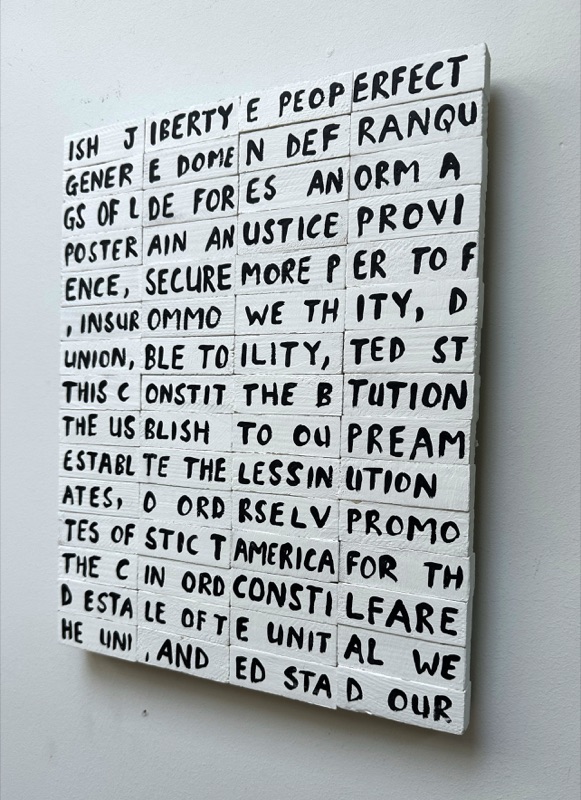 ISH J IBERTY E PEOP ERFECT
GENER E DOME N DEF RANQU
GS OF L DE FOR ES AN ORM A
POSTER AIN AN USTICE PROVI
ENCE, SECURE MORE P ER TO F
, INSUR OMMO WE TH ITY, D
UNION, BLE TO ILITY, TED ST
THIS C ONSTIT THE B TUTION
THE US BLISH TO OU PREAM
ESTABL TE THE LESSIN UTION
ATES, O ORD RSELV PROMO
TES OF STIC T AMERICA FOR TH
THE C IN ORD CONSTI LFARE
D ESTA LE OF T E UNIT AL WE
HE UNI , AND ED STA D OUR